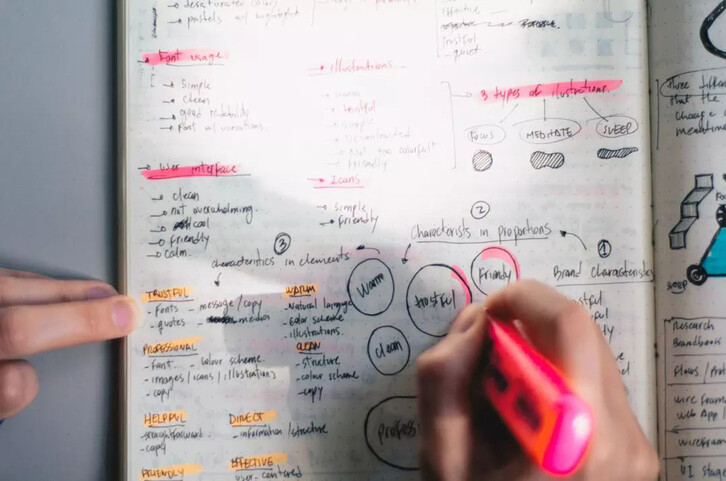 desaturated colors
pastels w/ highlight
Font usage
simple
clean
good readability
Font w/ variations
illustrations
warm
trustful
simple
Not too colorful
friendly
effective
trustful
quiet
3 types of ilustrations.
FOCUS
MEDITATE
SLEEP
User interface
clean
not overwhelming.
cool
Friendly
calm.
Icons
Simple
Friendly
② Characterists in proportions
③ characteristics in elements
① Brand Characteristics
Warm
trustful
Friendly
clean
Profess
TRUSTFUL
- Fonts - message / copy
- quotes
WARM
- Natural language
- Color scheme
- illustrations.
PROFESSIONAL
- Font - colour scheme
- images / icons / illustrations
- copy
CLEAN
- structure
- colour scheme
- copy
HELPFUL
- straightforward
- copy
DIRECT
- information / structure
FRIENDLY
EFFECTIVE
user-centered
Three
that the
change
SLEEP
Research
Flows / Prot
wire frame
Web App /
wirefram
UI stage